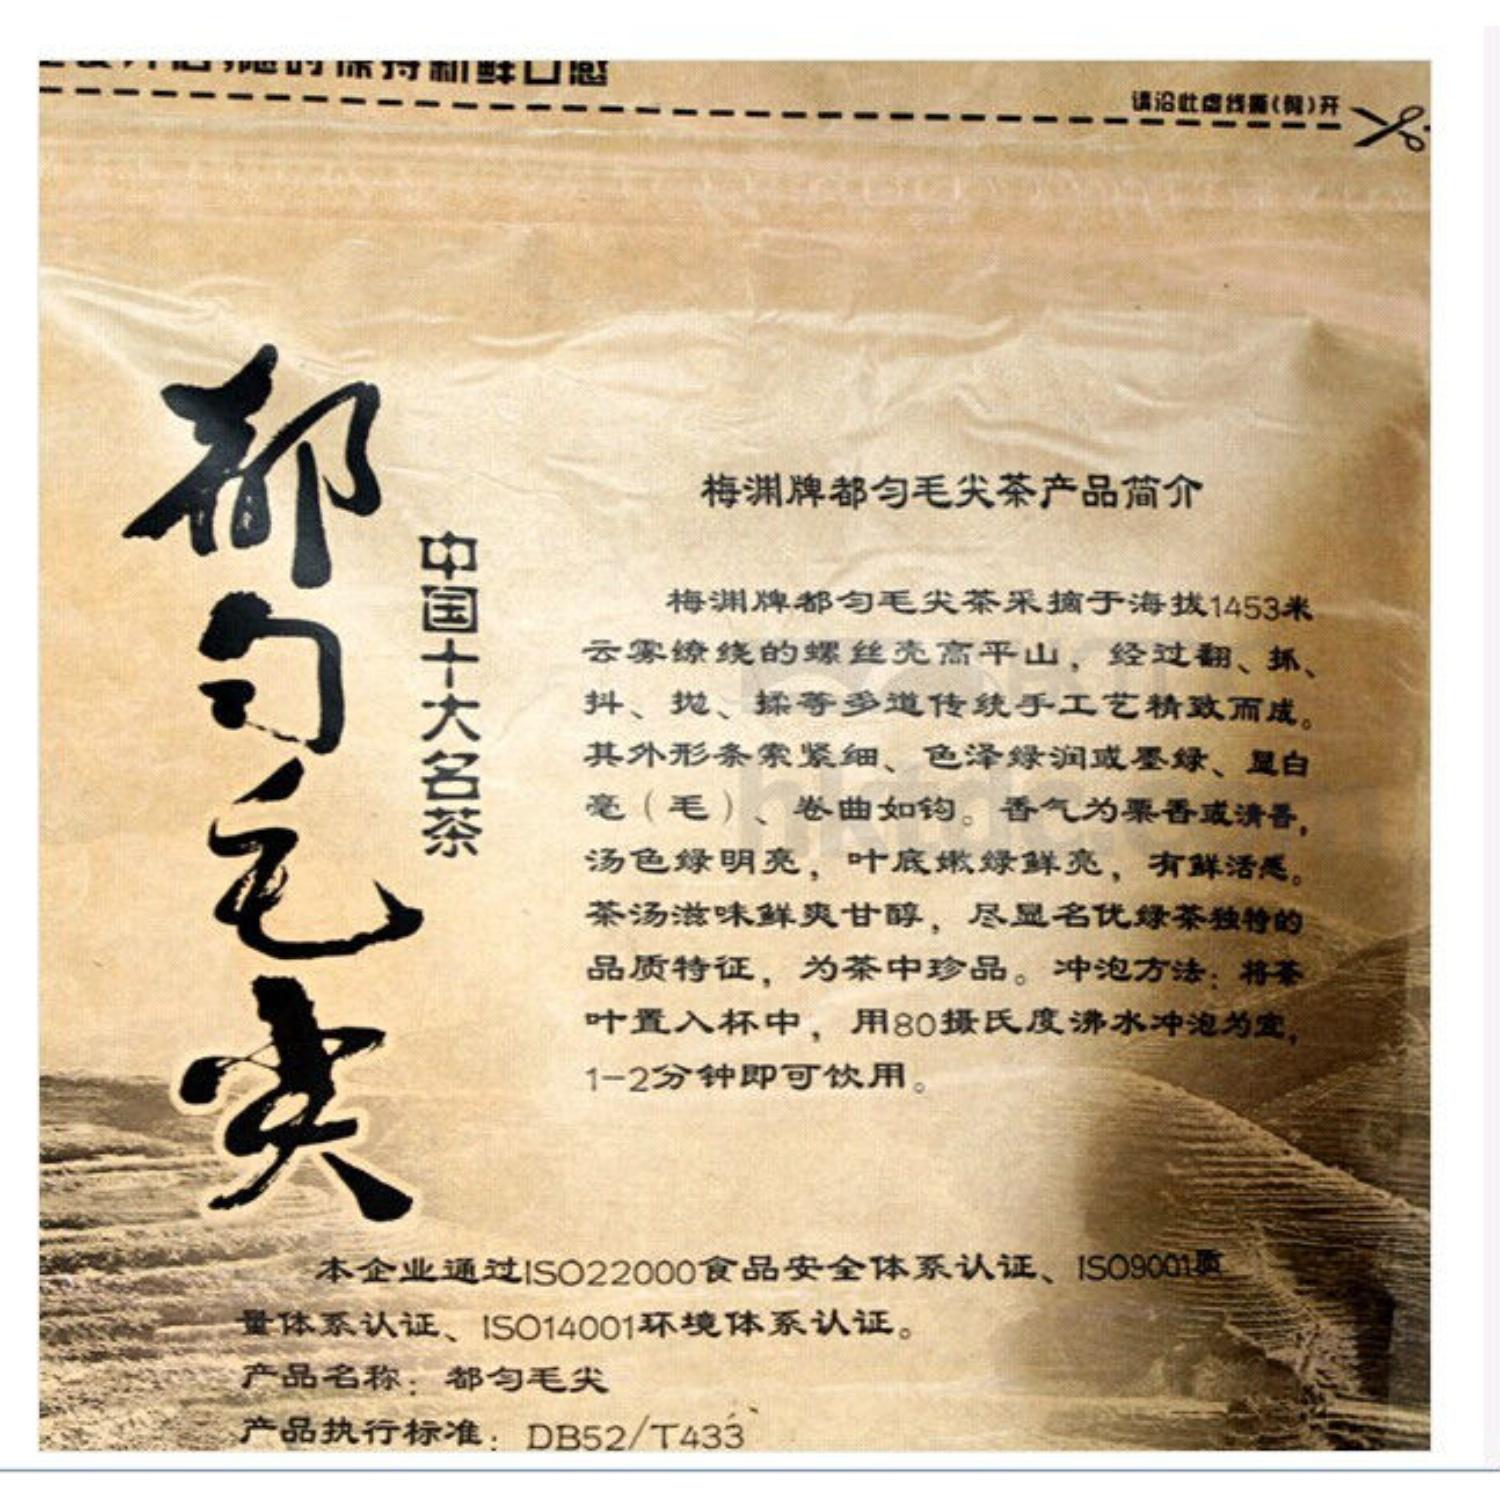 随时保持新鲜口感
请沿此虚线撕(剪)开
都匀毛尖
中国十大名茶
梅渊牌都匀毛尖茶产品简介
梅渊牌都匀毛尖茶采摘于海拔1453米
云雾缭绕的螺丝壳高平山，经过翻、抓、
抖、抛、揉等多道传统手工艺精致而成。
其外形条索紧细、色泽绿润或墨绿、显白
毫（毛）、卷曲如钩。香气为栗香或清香，
汤色绿明亮，叶底嫩绿鲜亮，有鲜活感。
茶汤滋味鲜爽甘醇，尽显名优绿茶独特的
品质特征，为茶中珍品。冲泡方法：将茶
叶置入杯中，用80摄氏度沸水冲泡为宜，
1-2分钟即可饮用。
本企业通过ISO22000食品安全体系认证、ISO9001质
量体系认证、ISO14001环境体系认证。
产品名称：都匀毛尖
产品执行标准：DB52/T433